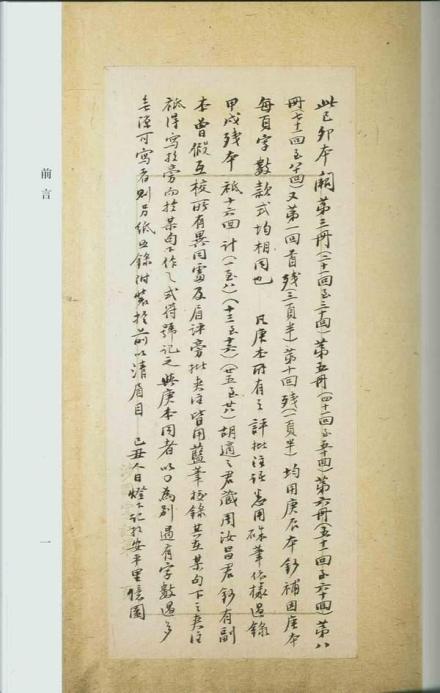 此己卯本闕第三冊(二十一回至三十回)第五冊(四十一回至五十回)第六冊(五十一回至六十回)第八
冊(七十一回至八十回)又第一回首殘(三頁半)第十回殘(一頁半)均用庚辰本鈔補因庚本
每頁字數款式均相同也 凡庚本所有之評批注語悉用硃筆依樣過錄
甲戌殘本祗十六回計(一至八)(十三至十六)(廿五至廿八)胡適之君藏周汝昌君鈔有副
本曾假互校所有異同處及眉評旁批夾注皆用藍筆校錄其在某句下之夾注
祗得寫於旁而於某句下作乀式符號記之與庚本同者以〇為別遇有字數過多
無隙可寫者則另紙照錄附裝於前以清眉目 己丑人日燈下記於安平里憶園
前言
一